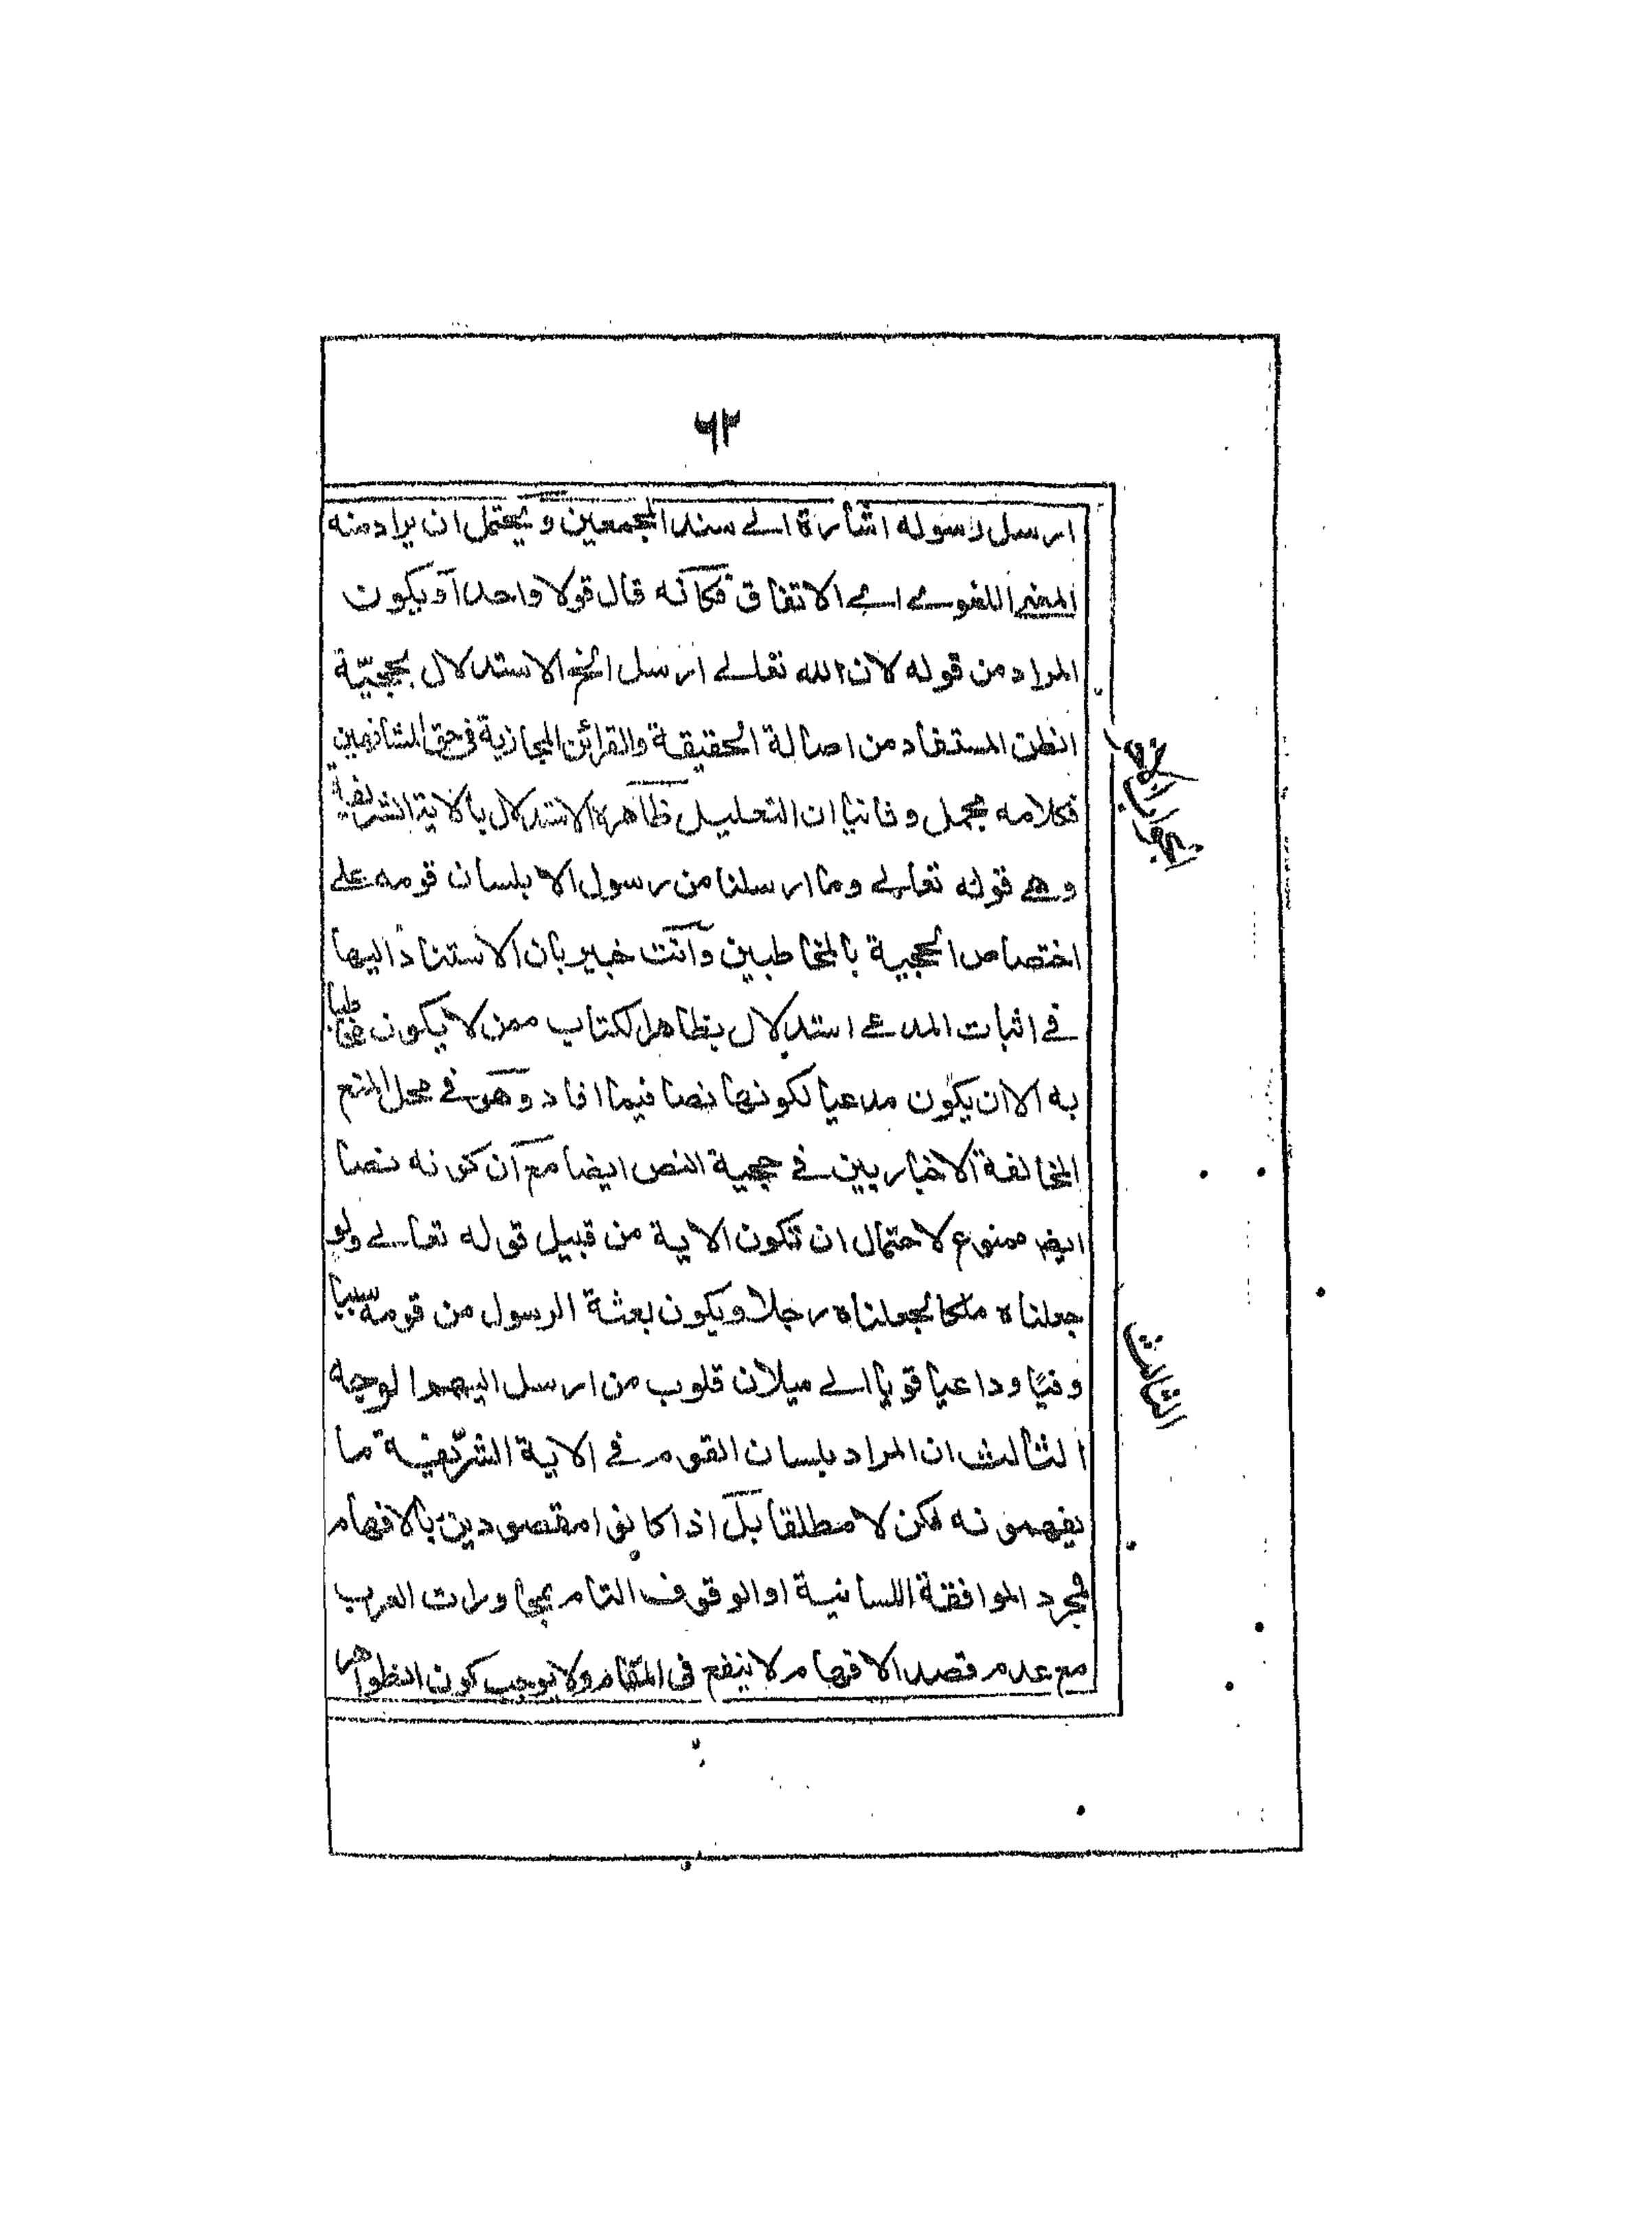 ٦٢
ارسل رسوله اشارة الے سند المجمعين ويحتمل ان يراد منه
المعنے اللغوے اے الاتفاق فكانه قال قولا واحدا ويكون
المراد من قوله لان الله تعالے ارسل الخ الاستدلال بحجيّة
الظن المستفاد من اصالة الحقيقة والقرائن المجازية فى حق المشافهين
فكلامه مجمل وثانيا ان التعليل ظاهره الاستدلال بالاية الشريفة
وهے قوله تعالے وما ارسلنا من رسول الا بلسان قومه علے
اختصاص الحجية بالمخاطبين وانت خبير بان الاستناد اليها
فے اثبات المدعے استدلال بظاهر الكتاب ممن لا يكون مخاطبا
به الا ان يكون مدعيا لكونها نصا فيما افاد وهو فے محل المنع
لمخالفة الاخباريين فے حجية النص ايضا مع ان كونه نصا
ايضا ممنوع لاحتمال ان تكون الاية من قبيل قوله تعالے ولو
جعلناه ملكا لجعلناه رجلا ويكون بعثة الرسول من قومه سببا
وداعيا قويا الے ميلان قلوب من ارسل اليهم الوجه
الثالث ان المراد بلسان القوم فے الاية الشريفة ما
يفهمونه لكن لا مطلقا بل اذا كانوا مقصودين بالافهام
فمجرد الموافقة اللسانية او الوقوف التام بمحاورات العرب
مع عدم قصد الافهام لا ينفع فى المقام ولا يوجب كون الظواهر
الثالث